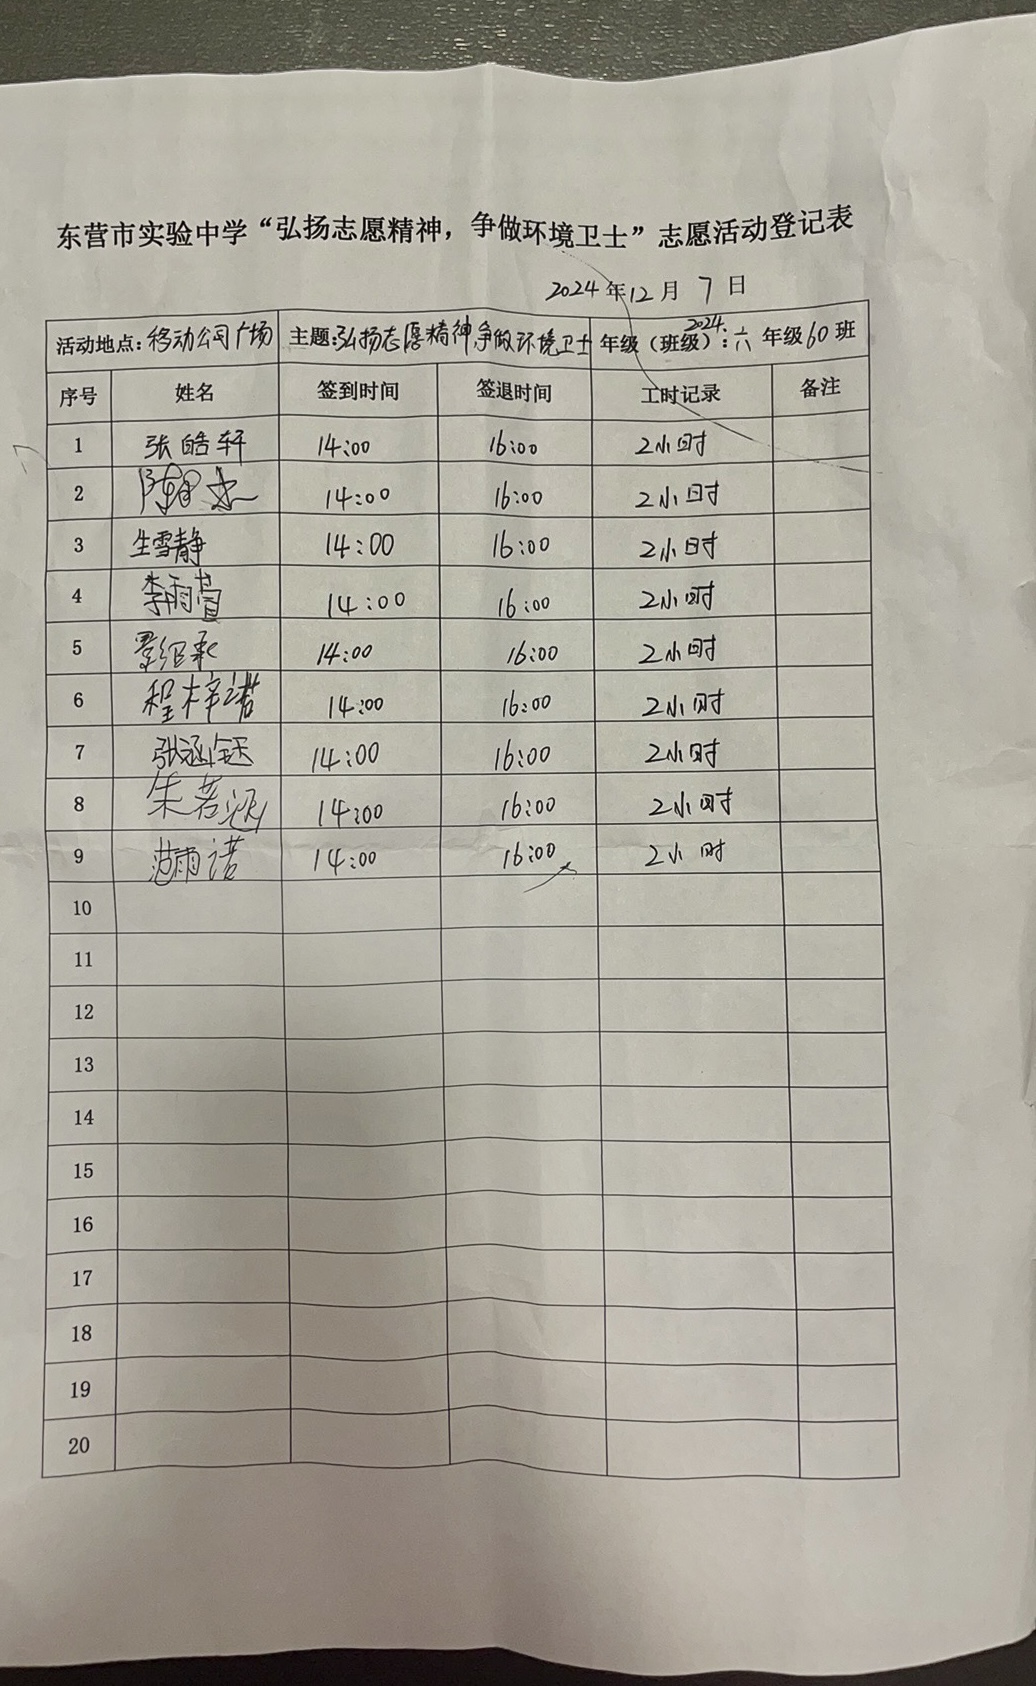 东营市实验中学“弘扬志愿精神，争做环境卫士”志愿活动登记表
2024年12月7日
活动地点：移动公司广场 主题：弘扬志愿精神,争做环境卫士 年级（班级）：2024.六 年级60班
序号 姓名 签到时间 签退时间 工时记录 备注
1 张皓轩 14:00 16:00 2小时
2 14:00 16:00 2小时
3 生雪静 14:00 16:00 2小时
4 李雨萱 14:00 16:00 2小时
5 14:00 16:00 2小时
6 程梓诺 14:00 16:00 2小时
7 张涵钰 14:00 16:00 2小时
8 朱若涵 14:00 16:00 2小时
9 范雨诺 14:00 16:00 2小时
10
11
12
13
14
15
16
17
18
19
20